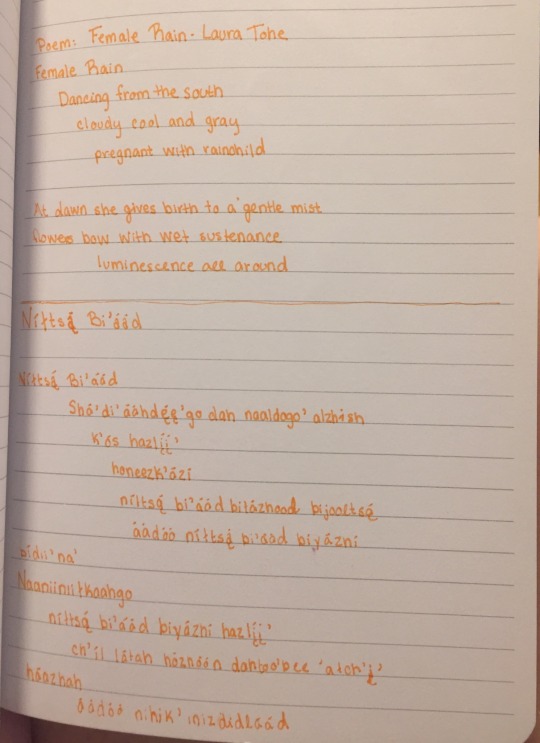 Poem: Female Rain - Laura Tohe
Female Rain
Dancing from the south
cloudy cool and gray
pregnant with rainchild
At dawn she gives birth to a gentle mist
flowers bow with wet sustenance
luminescence all around
Níłtsą́ Bi'áád
Níłtsą́ Bi'áád
Shá'di'ááhdę́ę́'go dah naaldogo' alzhish
k'ós hazlį́į́'
honeezk'ází
níłtsą́ bi'áád biłázhood bijooltsą́
áádóó níłtsą́ bi'áád biyázhí
bidii'na'
Naaniiniiłkaahgo
níłtsą́ bi'áád biyázhí hazlį́į́'
ch'il látah hózhóón dahtoo'bee 'ałch'į'
háazhah
áádóó nihik'inizdidláád